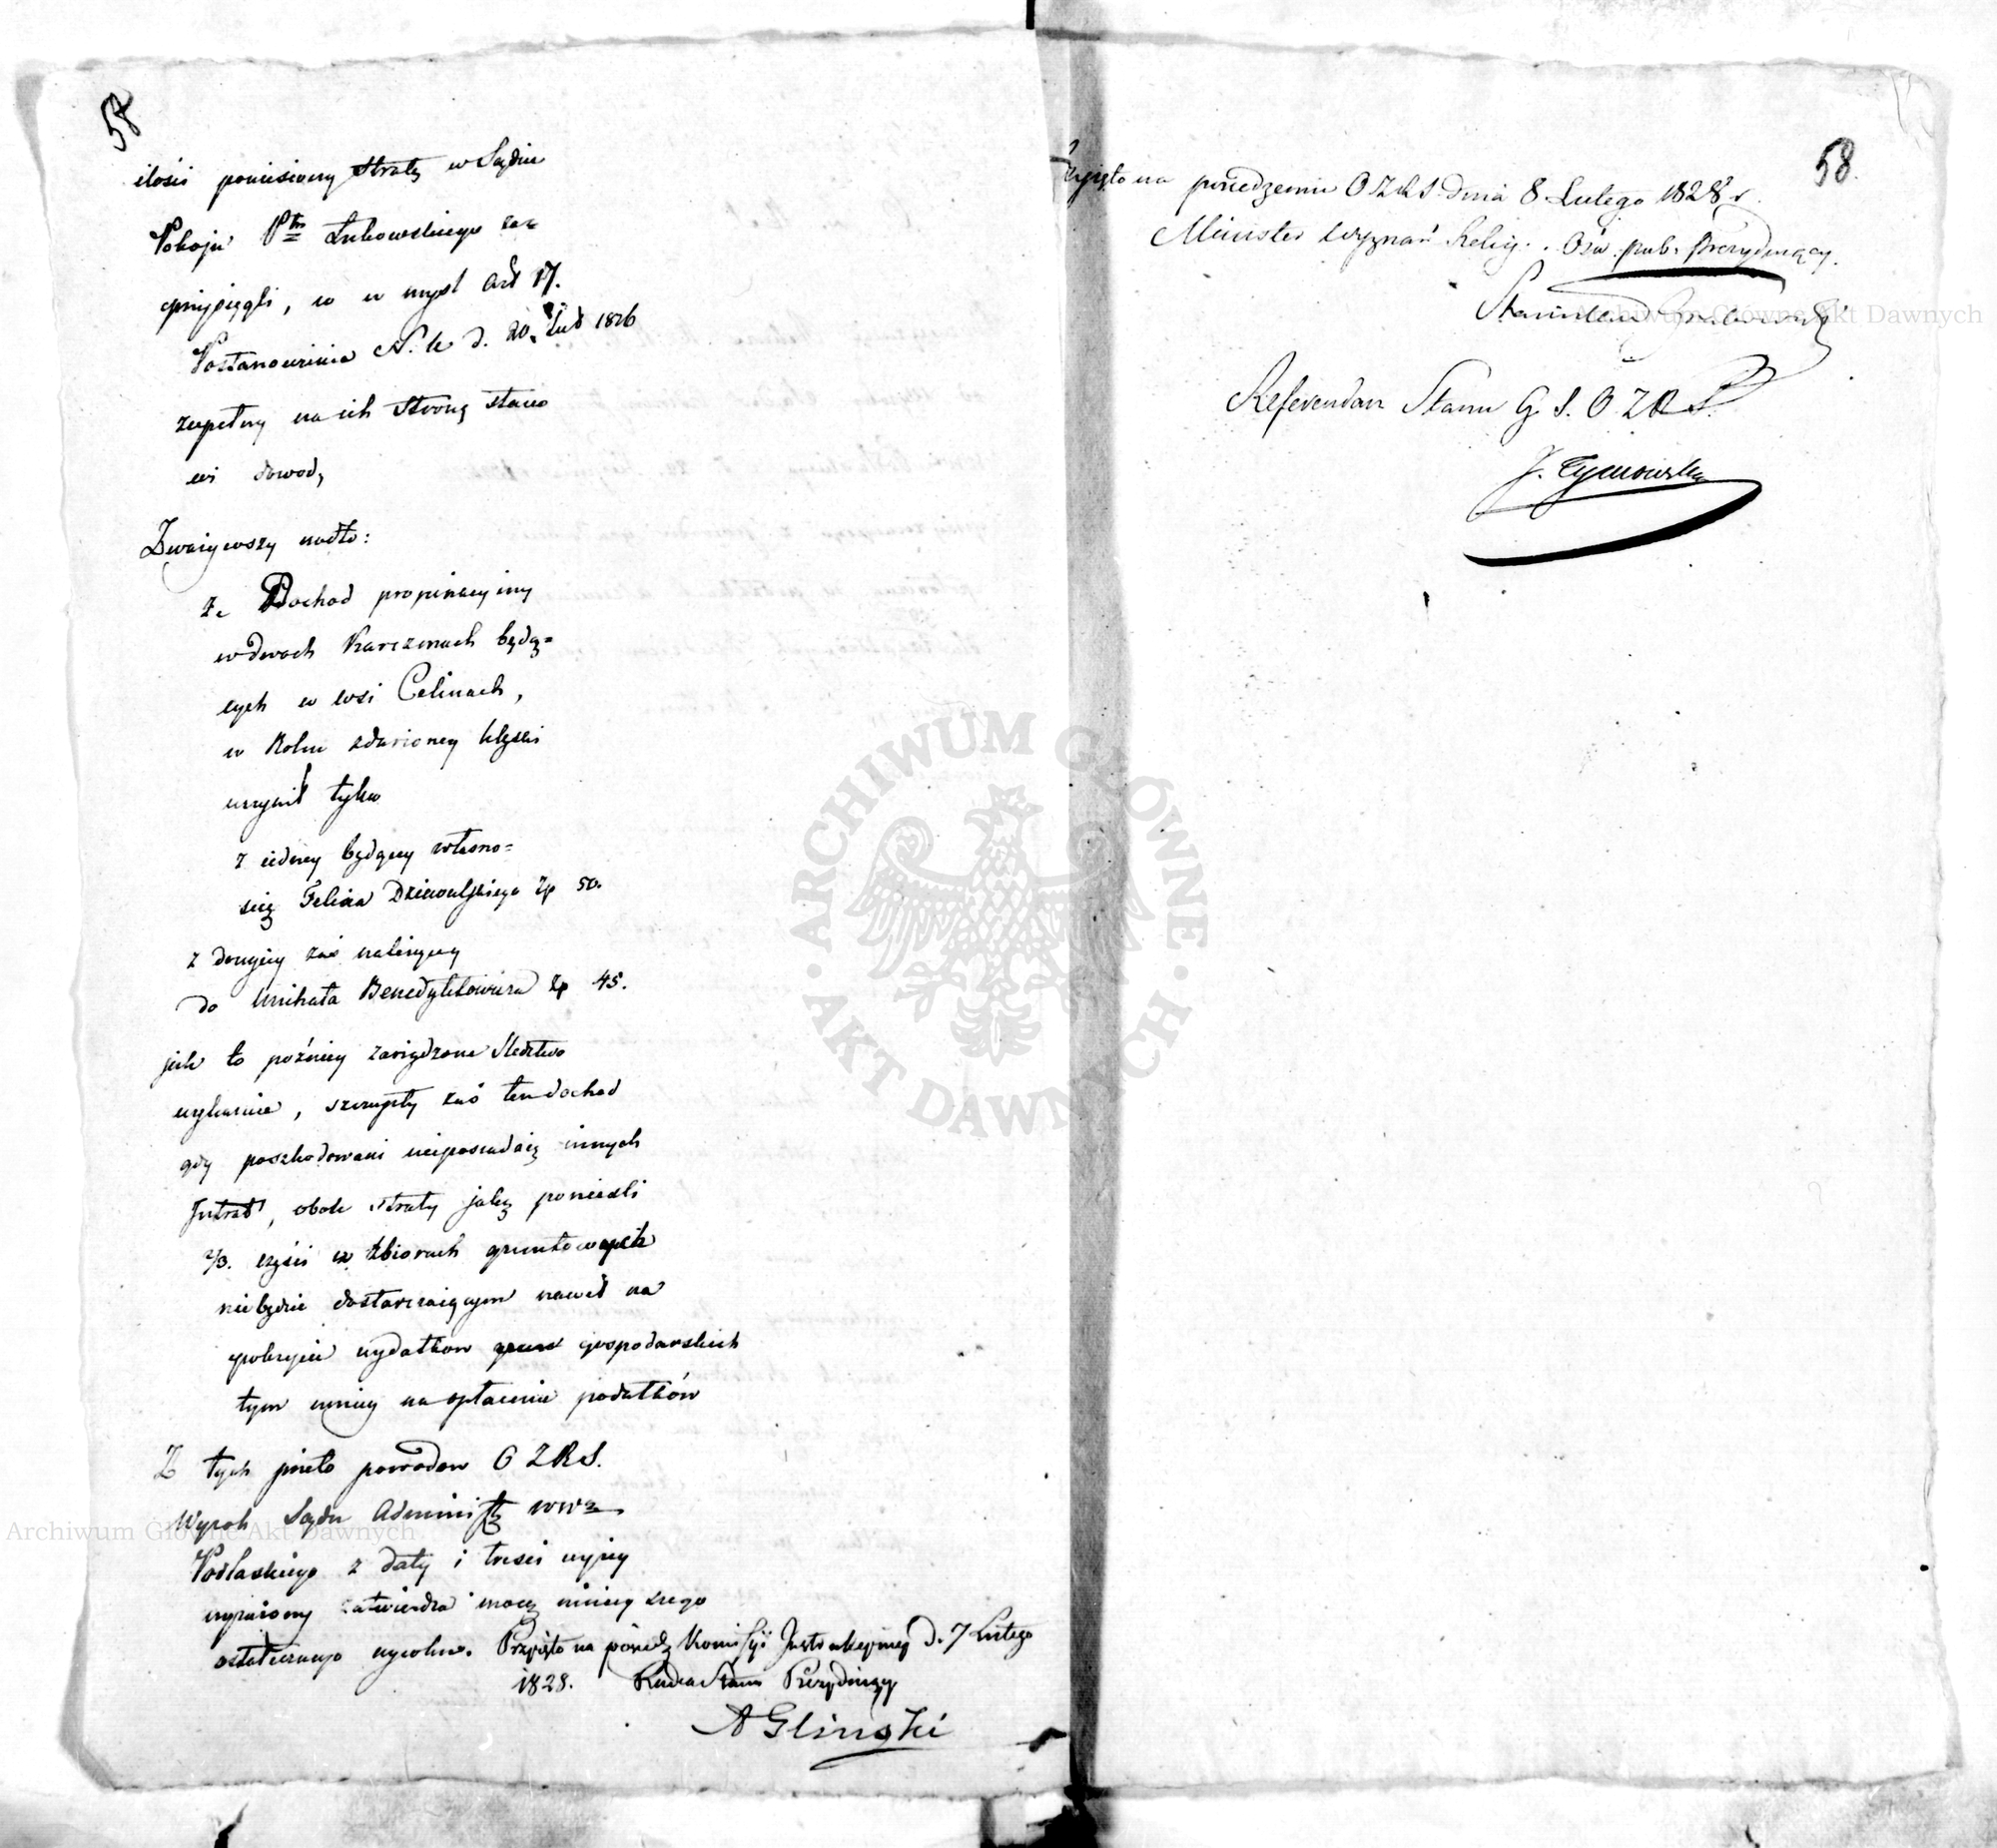 57
ilości poniesioney straty w Sądzie
Pokoju Ptu Łukowskiego za=
przysięgli, co w mysl Art 17.
Postanowienia N. k d. 20 Lut 1826
zupełny na ich stronę stano
wi dowod,
Zważywszy nadto:
że Dochod propinacyiny
w dwoch Karczmach będą=
cych w wsi Celinach,
w Roku zdarzoney klęski
uczynił tylko
z iedney będącey własno=
ścią Felixa Dziewulskiego Zp 50.
z drugiey zaś należącey
do Michała Benedyktowicza Zp 45.
jak to poźniey zarządzone Sledztwo
wykazuie, szczupły zaś ten dochod
gdy poszkodowani nieposiadaią innych
Intrat, obok straty jaką ponieśli
2/3. części w zbiorach gruntowych
niebędzie dostarczaiącym nawet na
pokrycie wydatkow gospodarskich
tym mniey na opłacenie podatków
Z tych przeto powodow O Z R S.
Wyrok Sądu Administ wwa
Podlaskiego z daty i treści wyżey
wyrażony zatwierdza mocą ninieyszego
ostatecznego wyroku. Przyięto na posiedz Komissyi Instrukcyiney d. 7 Lutego
1828. Radca Stanu Prezyduiący
A Gliński
58.
Przyięto na posiedzeniu O Z R S. dnia 8 Lutego 1828 r.
Minister Wyznań Relig. i Ośw. pub. Prezyduiący.
Stanisław Grabowski
Referendarz Stanu G. S. O. Z R S.
J. Tymowski
Archiwum Główne Akt Dawnych
Archiwum Główne Akt Dawnych
ARCHIWUM GŁÓWNE
AKT DAWNYCH